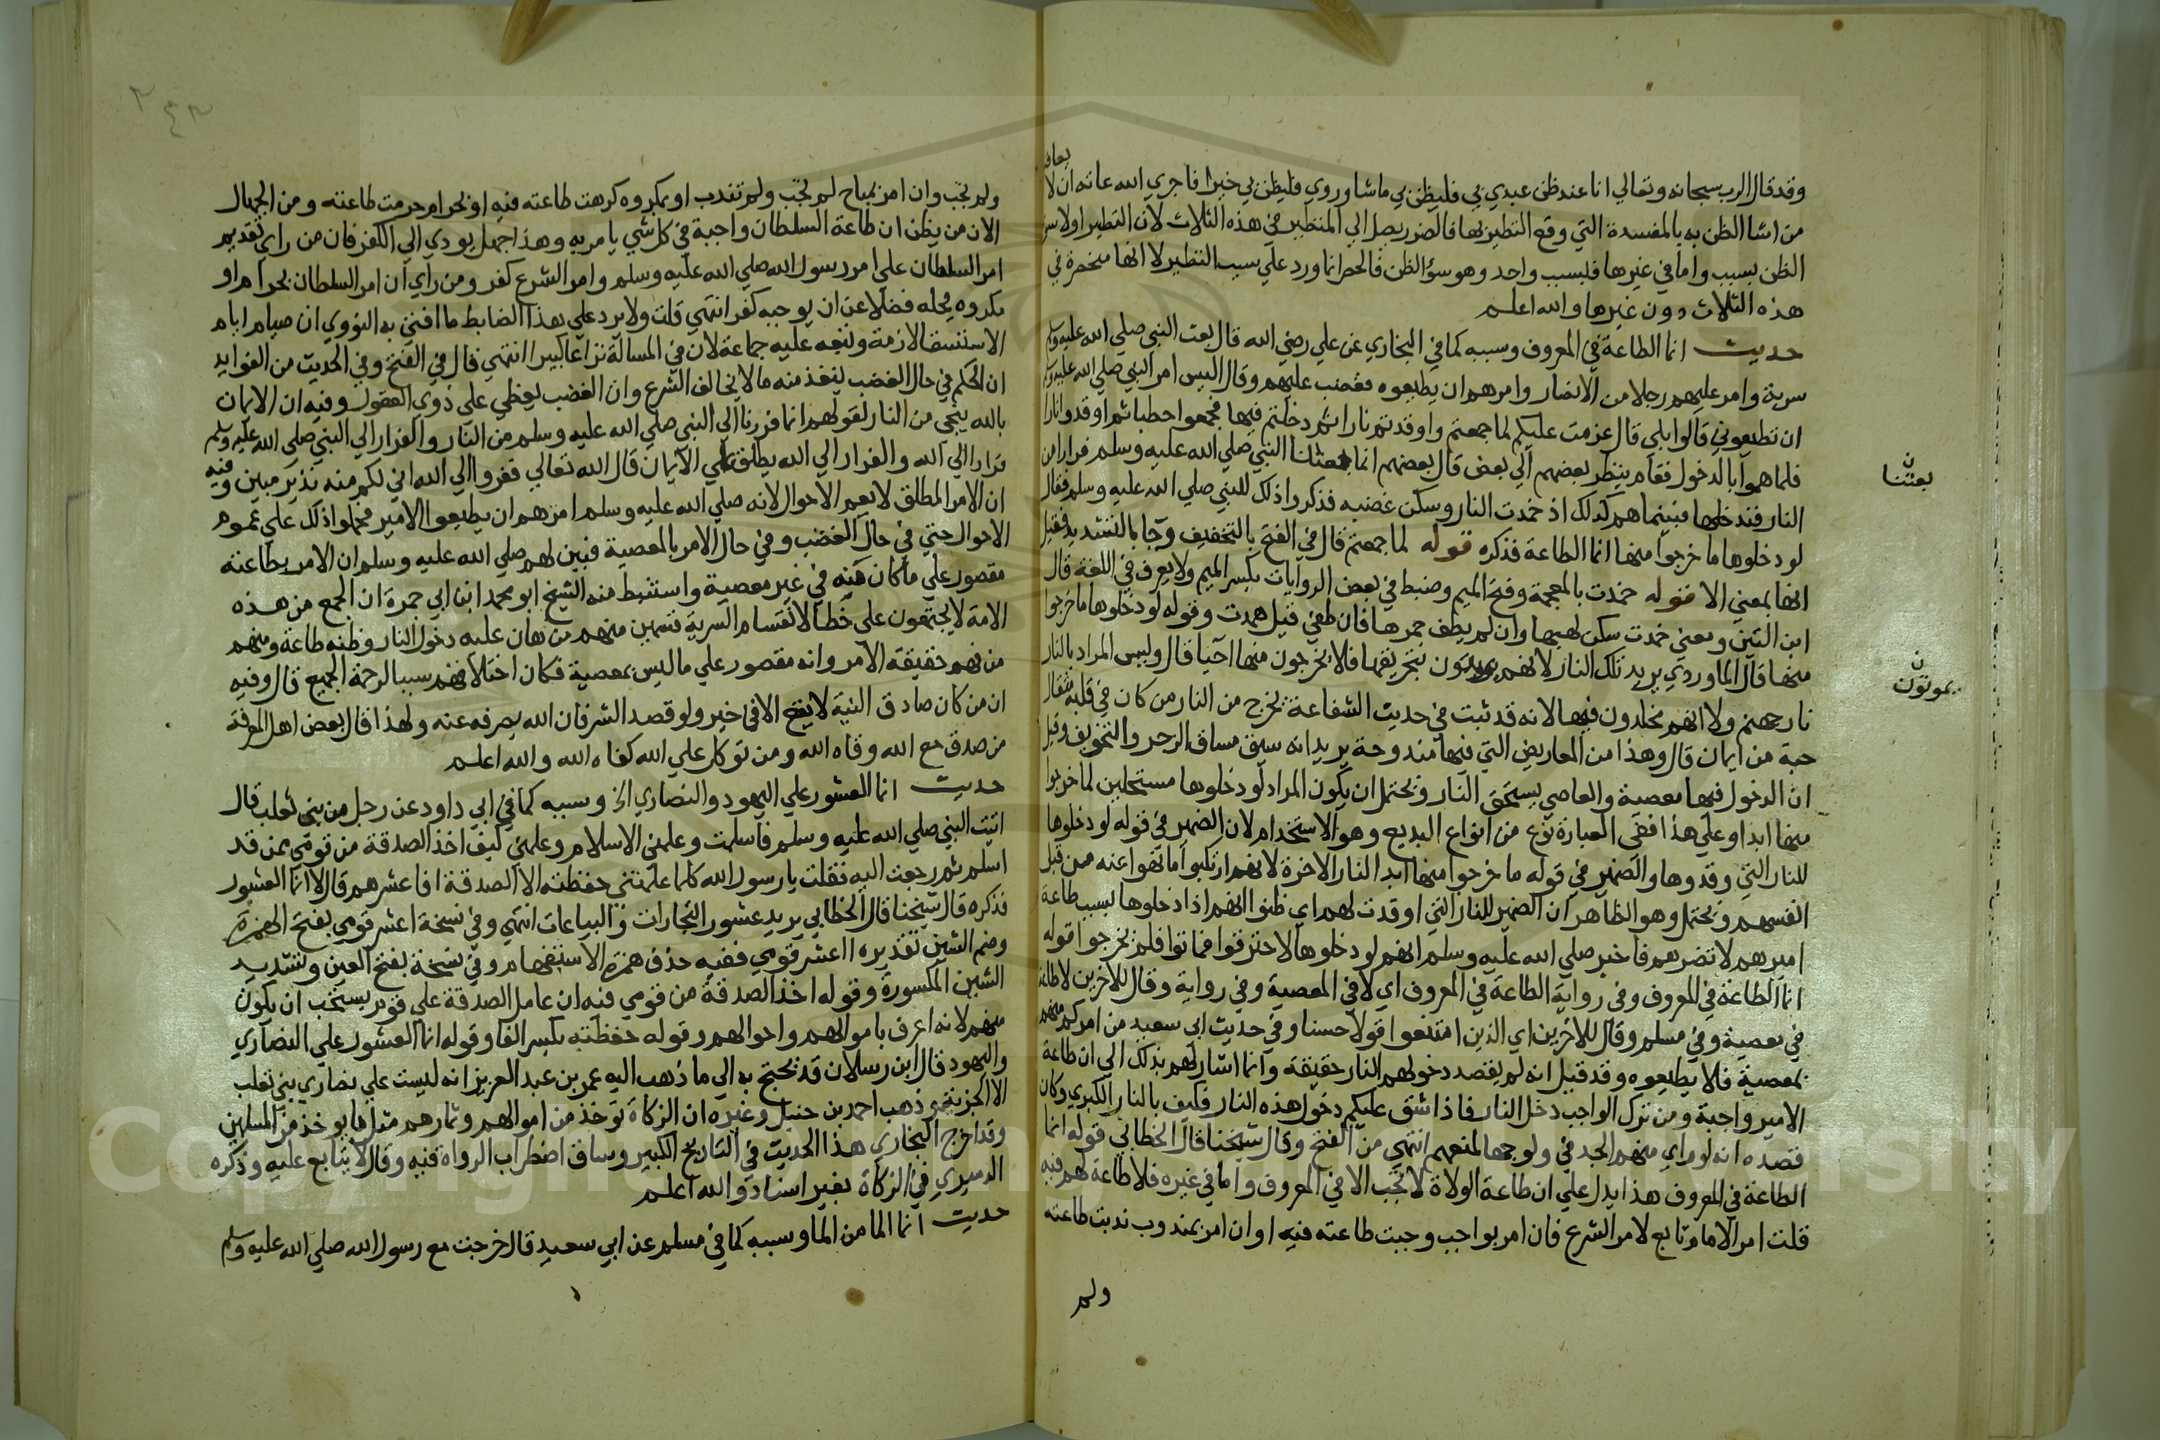 وقد قال الرب سبحانه وتعالي انا عند ظن عبدي بي فليظن بي ماشا وروي فليظن بي خيرا فاجري الله عاته ان لا
يعاقب
من اسا الظن به بالمفسدة التي وقع التطير بها فالضرر يصل الي المتطير في هذه الثلاث لان التطير اولا سو
الظن بسبب واما في غيرها فلسبب واحد وهو سؤ الظن فالحصر انما ورد علي سبب التطير لا انها منحصرة في
هذه الثلاث دون غيرها والله اعلم
حديث انما الطاعة في المعروف وسببه كما في البخاري عن علي رضي الله قال بعث النبي صلي الله عليه وسلم
سرية وامر عليهم رجلا من الانصار وامرهم ان يطيعوه فغضب عليهم وقال اليس امر النبي صلي الله عليه وسلم
ان تطيعوني قالوا بلي قال عزمت عليكم لما جمعتم واوقدتم نارا ثم دخلتم فيها فجمعوا حطبا ثم اوقدوا نارا
فلما هموا بالدخول فقام ينظر بعضهم الي بعض قال بعضهم انما بعثنا النبي صلي الله عليه وسلم فرارا من
النار فندخلها فبينما هم كذلك اذ خمدت النار وسكن غضبه فذكروا ذلك للنبي صلي الله عليه وسلم فقال
لو دخلوها ما خرجوا منها انما الطاعة فذكره قوله لما جمعتم قال في الفتح بالتخفيف وجا بالتشديد فقيل
انها بمعني الا قوله خمدت بالمعجمة وفتح الميم وضبط في بعض الروايات بكسر الميم ولا يعرف في اللغة قال
ابن التين ومعني خمدت سكن لهبها وان لم يطف جمرها فان طفي قيل همدت وقوله لو دخلوها ما خرجوا
منها قال الداودي يريد تلك النار لانهم يموتون بتحريقها فلا يخرجون منها احيا قال وليس المراد بالنار
نار جهنم ولا انهم مخلدون فيها لانه قد ثبت في حديث الشفاعة يخرج من النار من كان في قلبه مثقال
حبة من ايمان قال وهذا من المعاريض التي فيها مندوحة يريد انه سيق مساق الزجر والتخويف وقيل
ان الدخول فيها معصية والعاصي يستحق النار ويحتمل ان يكون المراد لو دخلوها مستحلين لما خرجوا
منها ابدا وعلي هذا ففي العبارة نوع من انواع البديع وهو الاستخدام لان الضمير في قوله لو دخلوها
للنار التي وقدوها والضمير في قوله ما خرجوا منها ابدا النار الاخرة لانهم ارتكبوا ما نهوا عنه من قتل
انفسهم ويحتمل وهو الظاهر ان الضمير للنار التي اوقدت لهم اي ظنوا انهم اذا دخلوها بسبب طاعة
اميرهم لا تضرهم فاخبر صلي الله عليه وسلم انهم لو دخلوها لاحترقوا فماتوا فلم يخرجوا قوله
انما الطاعة في المعروف وفي رواية الطاعة في المعروف اي لا في المعصية وفي رواية وقال للاخرين لا طاعة
في معصية وفي مسلم وقال للاخرين اي الذين امتنعوا قولا حسنا وفي حديث ابي سعيد من امركم منهم
بمعصية فلا يطيعوه وقد قيل انه لم يقصد دخولهم النار حقيقة وانما اشار لهم بذلك الي ان طاعة
الامير واجبة ومن ترك الواجب دخل النار فاذا شق عليكم دخول هذه النار فكيف بالنار الكبري وكان
قصده انه لو راي منهم الجد في ولوجها لمنعهم انتهي من الفتح وقال شيخنا قال الخطابي قوله انما
الطاعة في المعروف هذا يدل علي ان طاعة الولاة لا تجب الا في المعروف واما في غيره فلا طاعة لهم فيه
قلت امر الامام تابع لامر الشرع فان امر بواجب وجبت طاعته فيه او ان امر بمندوب ندبت طاعته
ولم
ن
بعثنا
ن
يموتون
٢٤٣
ولم تجب وان امر بمباح لم تجب ولم تندب او بمكروه كرهت طاعته فيه او بحرام حرمت طاعته ومن الجهال
الان من يظن ان طاعة السلطان واجبة في كل شي يامر به وهذا جهل يودي الي الكفر فان من راي تقديم
امر السلطان علي امر رسول الله صلي الله عليه وسلم وامر الشرع كفر ومن راي ان امر السلطان بحرام او
بكروه يحله فضلا عن ان يوجبه كفر انتهي قلت ولا يرد علي هذا الضابط ما افتي به النووي ان صيام ايام
الاستسقا لازمة وتبعه عليه جماعة لان في المسالة نزاعا كبيرا انتهي قال في الفتح وفي الحديث من الفوايد
ان الحكم في حال الغضب ينفذ منه ما لا يخالف الشرع وان الغضب يغطي علي ذوي العقول وفيه ان الايمان
بالله ينجي من النار لقولهم انما فررنا الي النبي صلي الله عليه وسلم من النار والفرار الي النبي صلي الله عليه وسلم
فرار الي الله والفرار الي الله يطلق علي الايمان قال الله تعالي ففروا الي الله اني لكم منه نذير مبين وفيه
ان الامر المطلق لا يعم الاحوال لانه صلي الله عليه وسلم امرهم ان يطيعوا الامير فحملوا ذلك علي عموم
الاحوال حتي في حال الغضب وفي حال الامر بالمعصية فبين لهم صلي الله عليه وسلم ان الامر بطاعته
مقصور علي ما كان منه في غير معصية واستنبط منه الشيخ ابو محمد ابن ابي جمرة ان الجمع من هذه
الامة لا يجتمعون علي خطا لانقسام السرية قسمين منهم من هان عليه دخول النار وظنه طاعة ومنهم
من فهم حقيقة الامر وانه مقصور علي ما ليس بمعصية فكان اختلافهم سببا لرحمة الجميع قال وفيه
ان من كان صادق النية لا يقع الا في خير ولو قصد الشر فان الله يصرفه عنه ولهذا قال بعض اهل المعرفة
من صدق مع الله وقاه الله ومن توكل علي الله كفاه الله والله اعلم
حديث انما العشور علي اليهود والنصاري الخ وسببه كما في ابي داود عن رجل من بني تعلب قال
اتيت النبي صلي الله عليه وسلم فاسلمت وعلمني الاسلام وعلمني كيف اخذ الصدقة من قومي ممن قد
اسلم ثم رجعت اليه فقلت يا رسول الله كلما علمتني حفظته الا الصدقة افاعشرهم قال لا انما العشور
فذكره قال شيخنا قال الخطابي يريد عشور التجارات والبياعات انتهي وفي نسخة اعشر قومي بفتح الهمزة
وضم الشين تقديره ااعشر قومي ففيه حذف همزة الاستفهام وفي نسخة بفتح العين وتشديد
الشين المكسورة وقوله اخذ الصدقة من قومي فيه ان عامل الصدقة علي قوم يستحب ان يكون
منهم لانه اعرف باموالهم واحوالهم وقوله حفظته بكسر الفا وقوله انما العشور علي النصاري
واليهود قال ابن رسلان قد يحتج به الي ما ذهب اليه عمر بن عبد العزيز انه ليست علي نصاري بني تعلب
الا الجزية وذهب احمد بن حنبل وغيره ان الزكاة توخذ من اموالهم وثمارهم مثل ما يوخذ من المسلمين
وقد اخرج البخاري هذا الحديث في التاريخ الكبير وساق اضطراب الرواة فيه وقال لا يتابع عليه وذكره
الدميري في الزكاة بغير اسناد والله اعلم
حديث انما الما من الما وسببه كما في مسلم عن ابي سعيد قال خرجت مع رسول الله صلي الله عليه وسلم